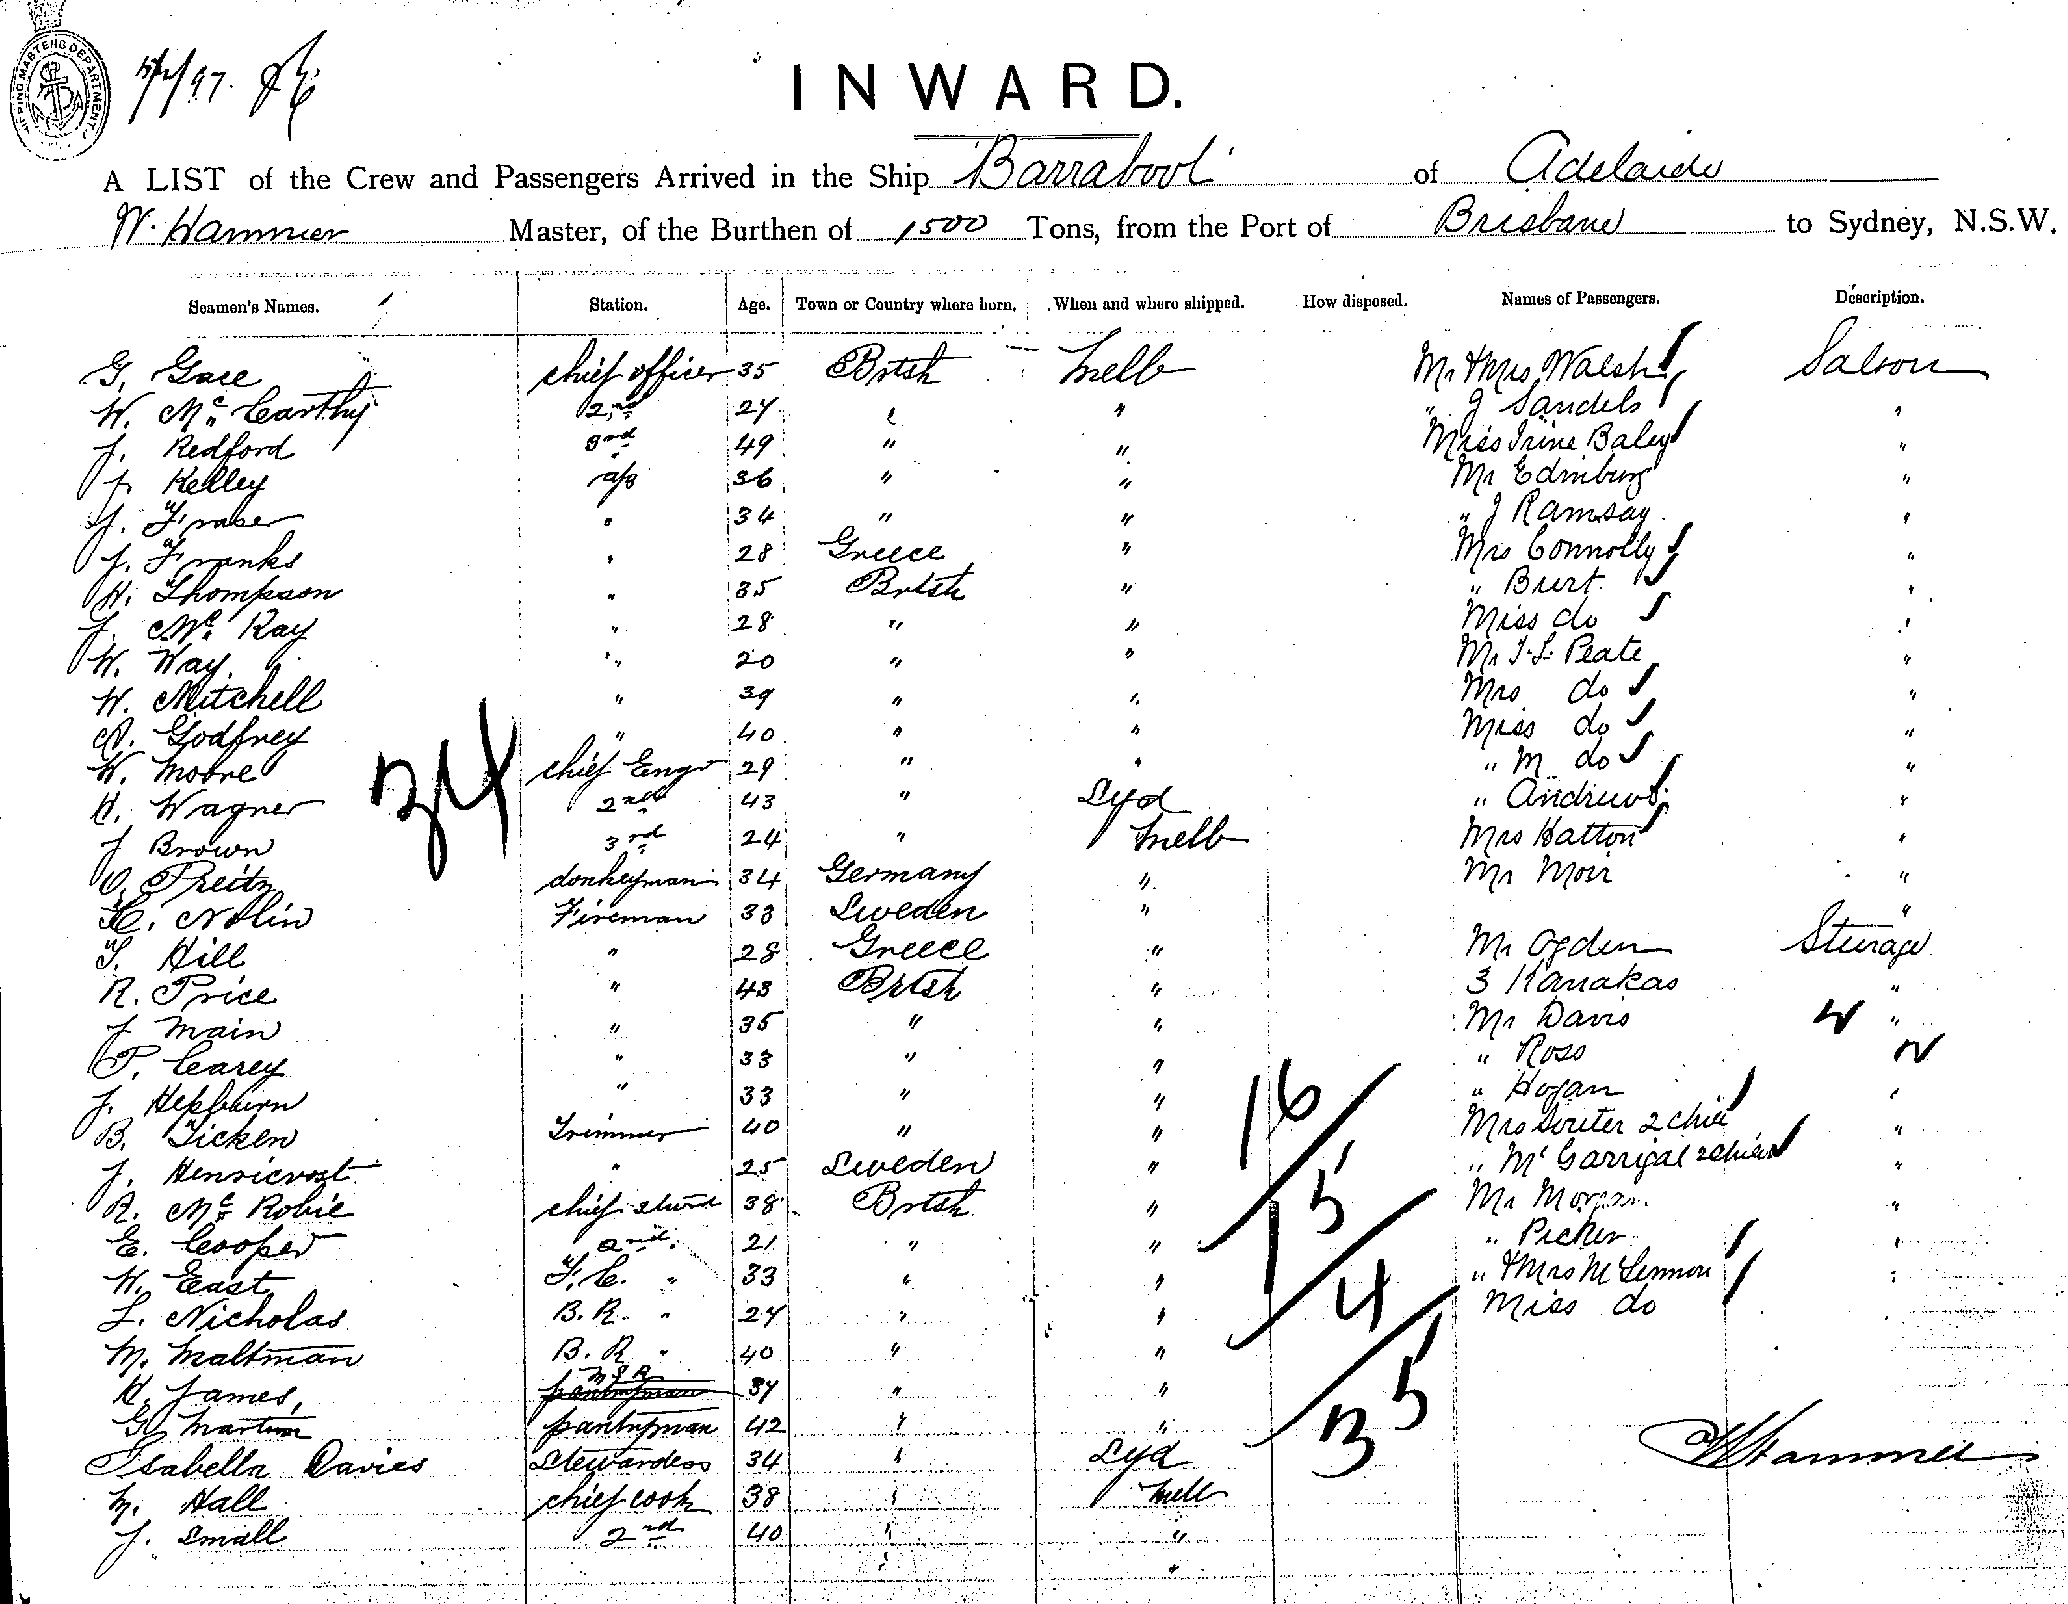 SHIPPING MASTERS DEPARTMENT
INWARD.
A LIST of the Crew and Passengers Arrived in the Ship Barrabool of Adelaide
W. Hammer Master, of the Burthen of 1500 Tons, from the Port of Brisbane to Sydney, N.S.W.
Seamen's Names. Station. Age. Town or Country where born. When and where shipped. How disposed. Names of Passengers. Description.
G. chief officer 35 Brtsh Melb Mr & Mrs Walsh Saloon
W. McCarthy 2nd 27 " " " J Sandels "
J. Redford 3rd 49 " " Miss Irine Baley "
J. Kelley a/b 36 " " Mr Edinburg "
J. Fraser " 34 " " " J Ramsay "
J. Franks " 28 Greece " Mrs Connolly "
H. Thompson " 35 Brtsh " " Burt. "
J. McKay " 28 " " Miss do "
W. Way " 20 " " Mr T. S. Peate "
W. Mitchell " 39 " " Mrs do "
A. Godfrey " 40 " " Miss do "
W. Moore chief Engr 29 " " " M do "
H. Wagner 2nd 43 " Syd " Andrews "
J Brown 3rd 24 " Melb Mrs Hatton "
O. Preitz donkeyman 34 Germany " Mr Moir "
H. Nolin Fireman 33 Sweden " "
T. Hill " 28 Greece " Mr Ogden Sturage
R. Price " 43 Brtsh " 3 Kanakas "
J Main " 35 " " Mr Davis "
P. Carey " 33 " " " Ross
J. Hepburn " 33 " " " Hogan "
B. Ticken Trimmer 40 " " Mrs Souter 2 chil "
J. " 25 Sweden " " McGarrigal 2 "
R. McRobie chief 38 Brtsh " Mr Morgan. "
E. Cooper 2nd. 21 " " " Picker "
W. East F. C. " 33 " " " & Mrs McLennon "
L. Nicholas B. R. " 27 " " Miss do
M. Maltman B. R " 40 " "
H. James, 37 " "
G. Martin pantryman 42 " "
Isabella Davies Stewardess 34 " Syd W Hammer
M. Hall chief cook 38 " Melb
J. Small 2nd 40 " "
34
16
15
14
35